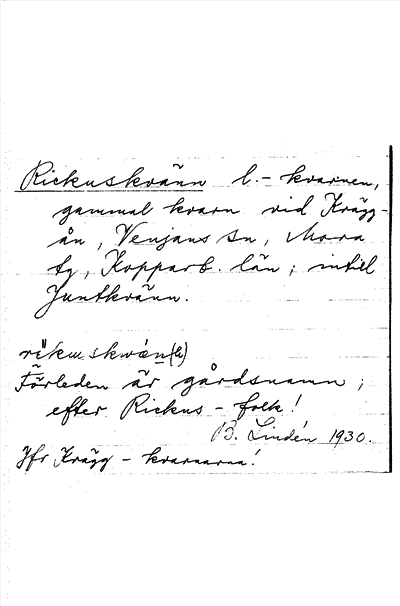 Rickuskvänn l.- kvarnen,
gammal kvarn vid Krägg-
ån, Venjans sn, Mora
tg, Kopparb. län; intill
Juntkvänn.
Förleden är gårdsnamn;
efter Rickus-folk!
B. Lindén 1930.
Jfr Krägg-kvarnarna!